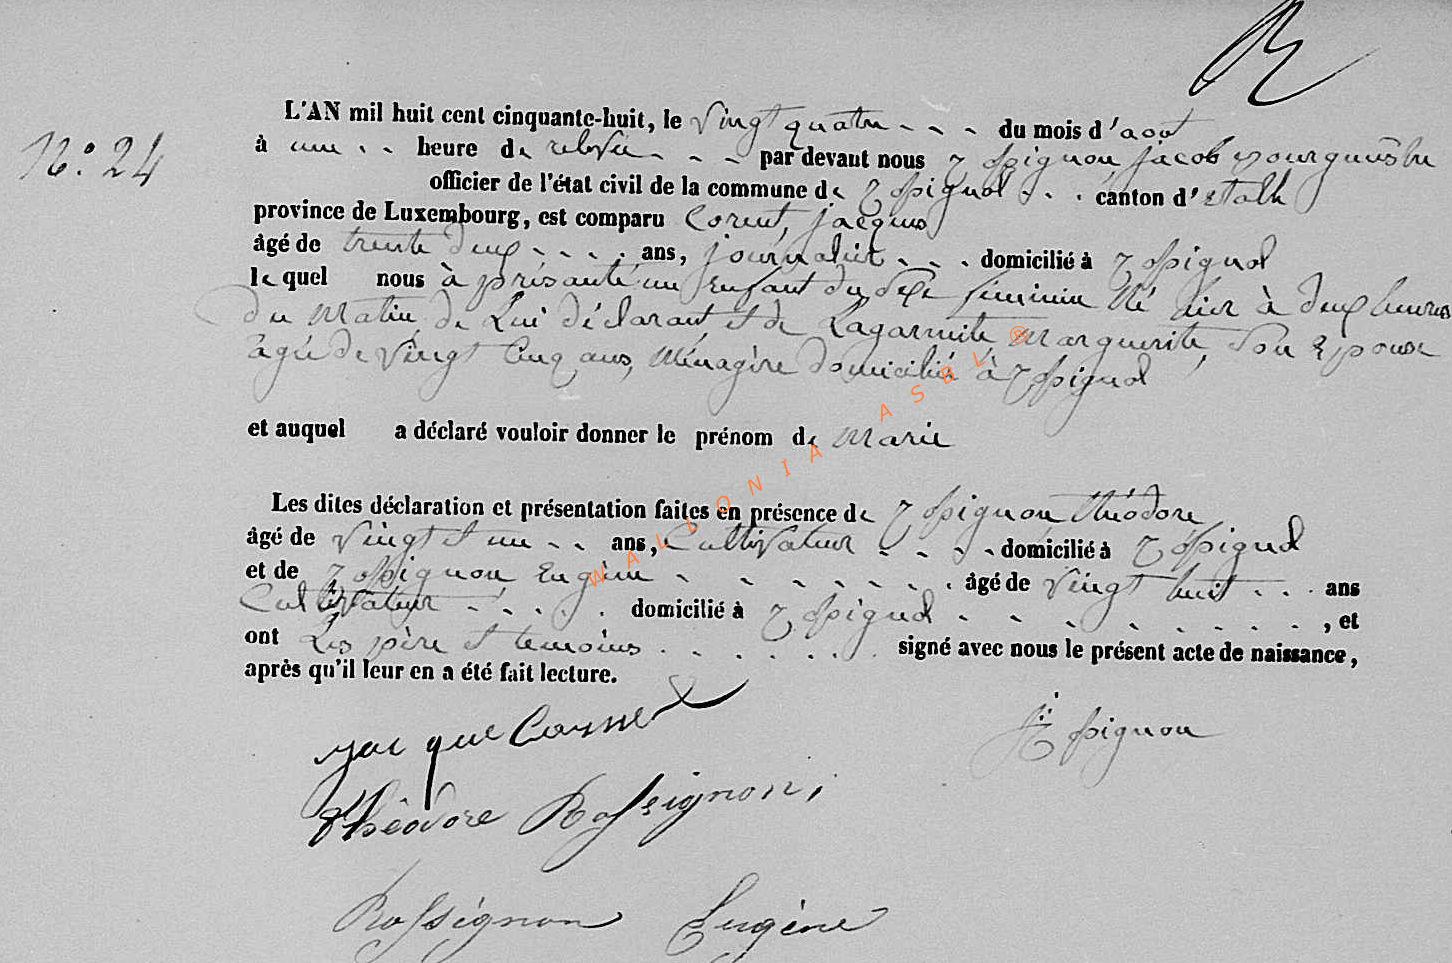 N.° 24
L'AN mil huit cent cinquante-huit, le Vingt quatre - - - du mois d'aout
à une - - heure de relevée - - - par devant nous Rossignon jacob Bourgumestre
officier de l'état civil de la commune de Rossignol - - canton d'Etalle
province de Luxembourg, est comparu jacques
âgé de trente deux - - - - ans, journalier - - - domicilié à Rossignol
lequel nous à présenté un Enfant du Sexe féminin Né hier à deux heures
du Matin, de Lui déclarant, et de Marguerite, Son Epouse
âgée de Vingt Cinq ans, Ménagère domiciliée à Rossignol
et auquel a déclaré vouloir donner le prénom de Marie
Les dites déclaration et présentation faites en présence de Rossignon théodore
âgé de Vingt et un - - ans, Cultivateur - - - - domicilié à Rossignol
et de Rossignon Eugène - - - - - - - - âgé de Vingt huit - - - ans
Cultivateur - - - - - domicilié à Rossignol - - - - - - - - , et
ont Les père et temoins - - - - - - signé avec nous le présent acte de naissance,
après qu'il leur en a été fait lecture.
jacque
Rossignon
théodore Rossignon
Rossignon Eugène
WALLONIA ASBL ®